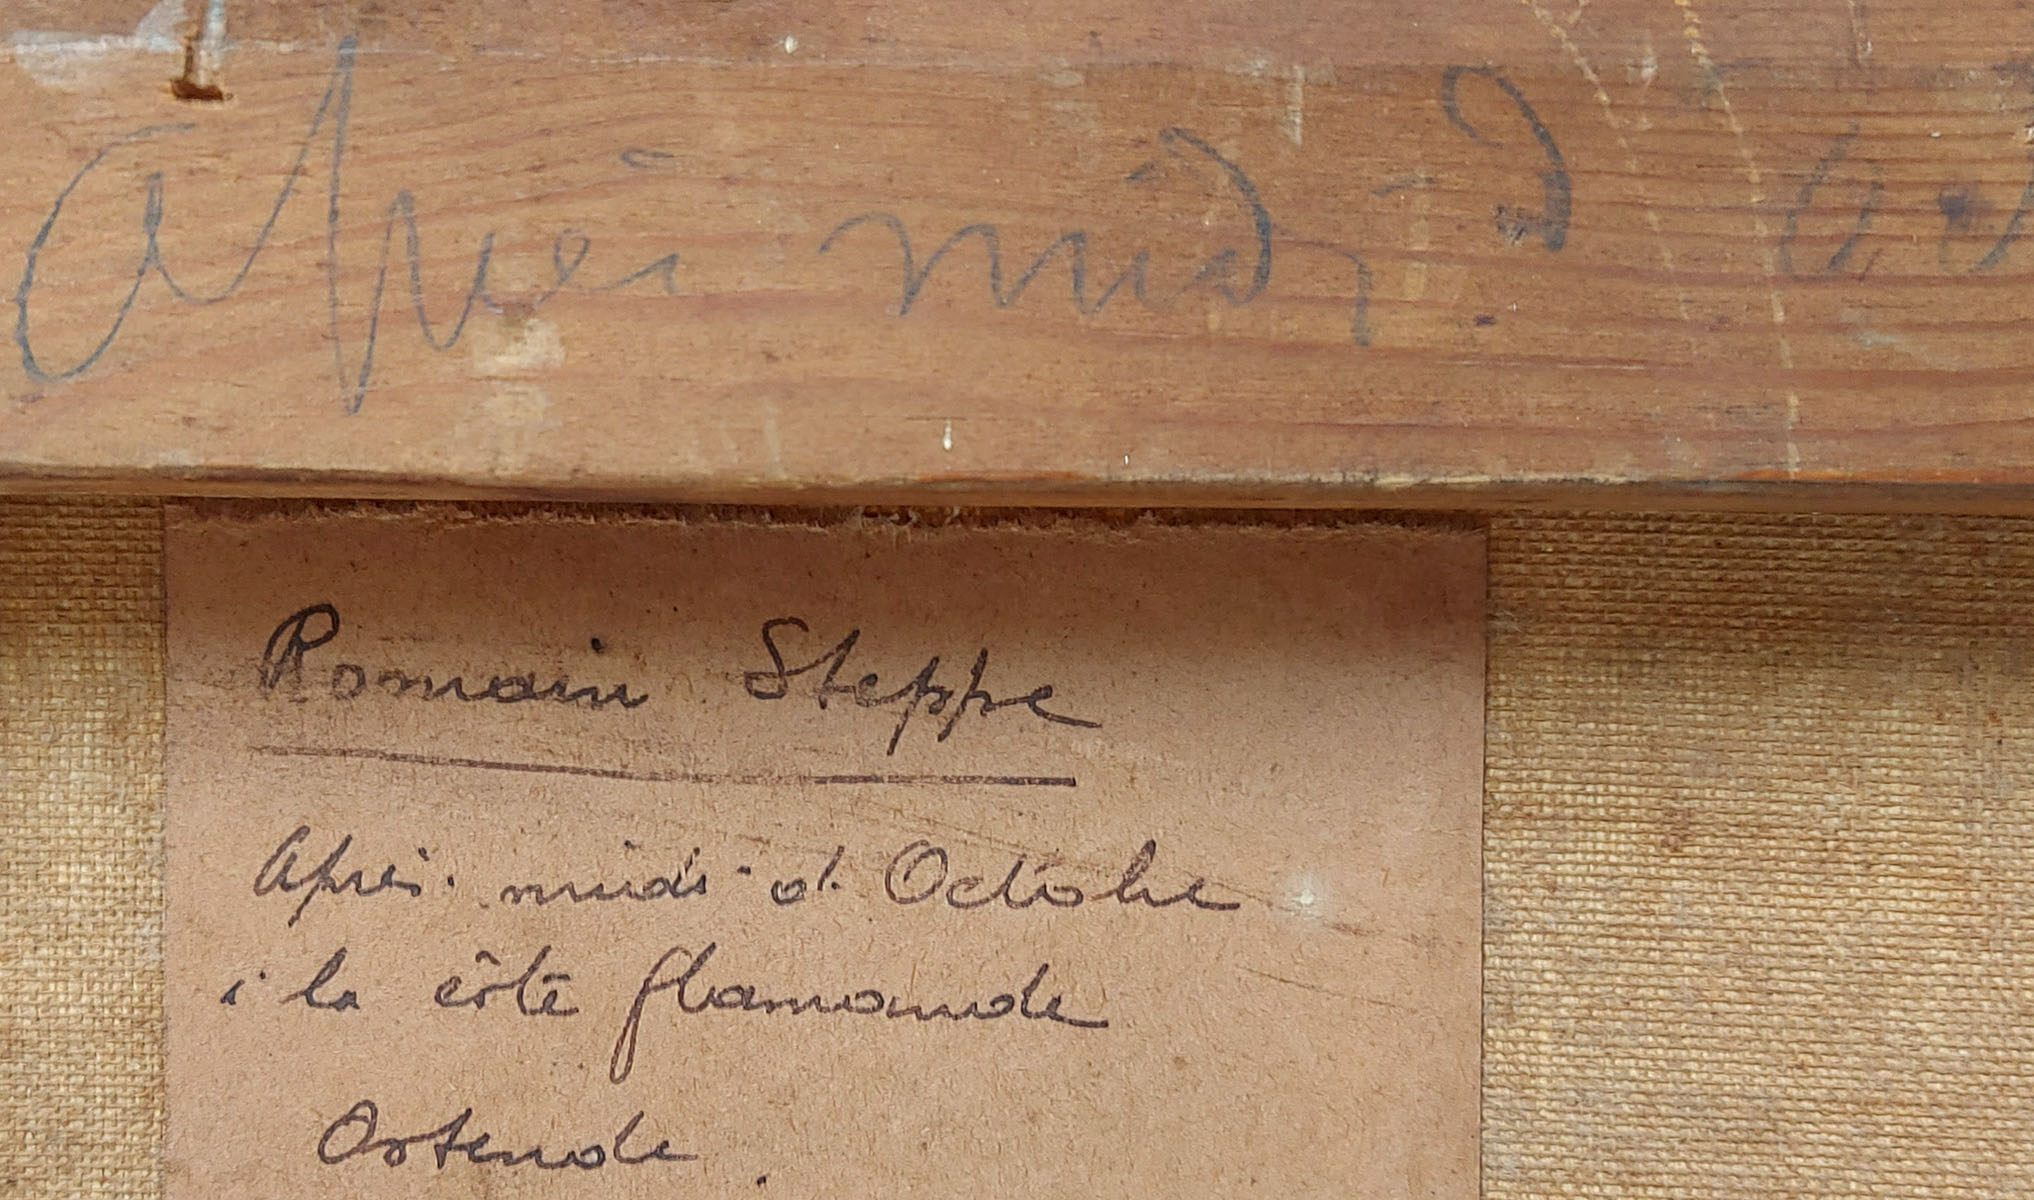 après midi d'
Romain Steppe
Après-midi d'Octobre
à la côte flamande
Ostende.